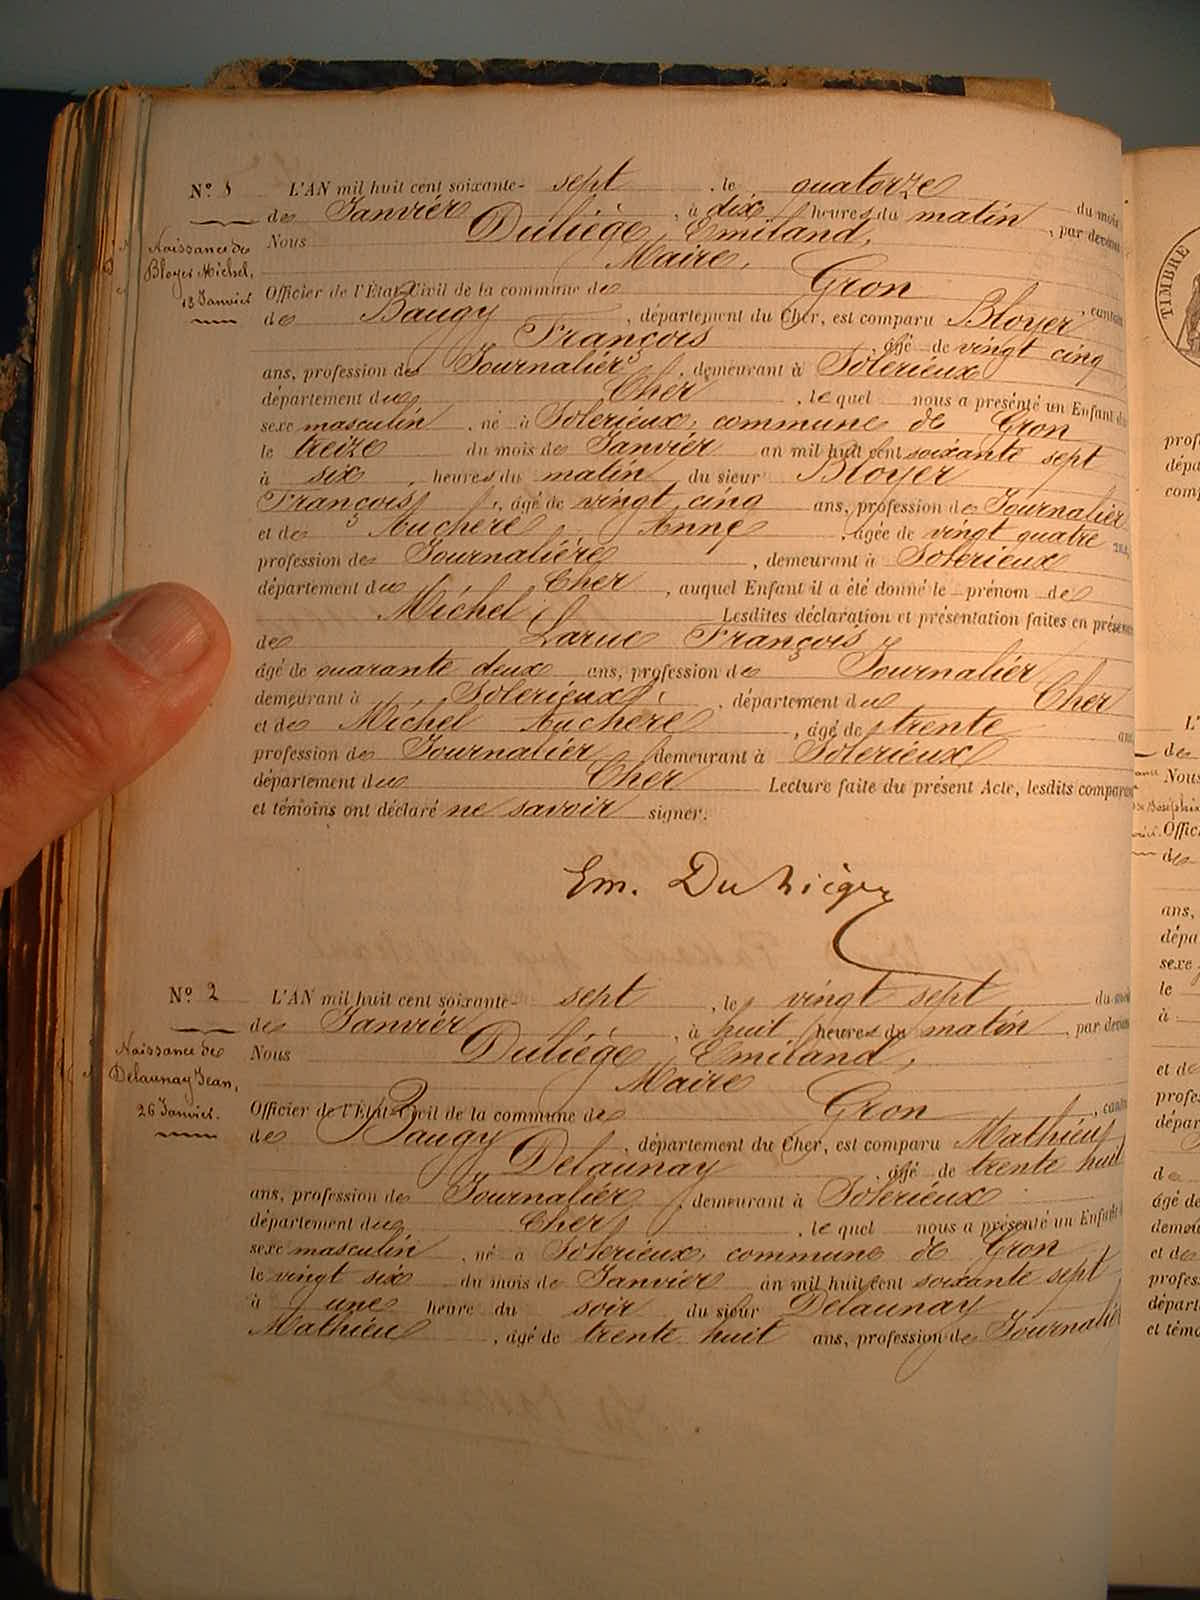 N° 1 L'AN mil huit cent soixante- sept, le quatorze du mois
de Janvier, à dix heures du matin, par devant
Nous Duliège Emiland,
Maire,
Officier de l'État-Civil de la commune de Gron, canton
de Baugy, département du Cher, est comparu Bloyer
François, âgé de vingt cinq
ans, profession de Journalier, demeurant à Solerieux
département du Cher, lequel nous a présenté un Enfant du
sexe masculin, né à Solerieux, commune de Gron
le treize du mois de Janvier an mil huit cent soixante sept
à six heures du matin du sieur Bloyer
François, âgé de vingt cinq ans, profession de Journalier
et de Aucheré Anne, âgée de vingt quatre ans,
profession de Journalière, demeurant à Solerieux
département du Cher, auquel Enfant il a été donné le prénom de
Michel Lesdites déclaration et présentation faites en présence
de Larue François
âgé de quarante deux ans, profession de Journalier
demeurant à Solerieux, département du Cher
et de Michel Aucheré, âgé de trente ans
profession de Journalier demeurant à Solerieux
département du Cher Lecture faite du présent Acte, lesdits comparant
et témoins ont déclaré ne savoir signer.
Naissance de
Bloyer Michel,
13 Janvier
Em. Duliège
N° 2 L'AN mil huit cent soixante- sept, le vingt sept du mois
de Janvier, à huit heures du matin, par devant
Nous Duliège Emiland,
Maire
Officier de l'État-Civil de la commune de Gron, canton
de Baugy, département du Cher, est comparu Mathieu
Delaunay, âgé de trente huit
ans, profession de Journalier, demeurant à Solerieux
département du Cher, lequel nous a présenté un Enfant
sexe masculin, né à Solerieux, commune de Gron
le vingt six du mois de Janvier an mil huit cent soixante sept
à une heure du soir du sieur Delaunay
Mathieu, âgé de trente huit ans, profession de Journalier
Naissance de
Delaunay Jean,
26 Janvier.
TIMBRE
prof
dépa
com
L'
de
Nous
Offic
de
ans,
dépa
sexe
le
à
et de
profes
dépar
de
âgé de
demeu
et de
profess
départ
et témo